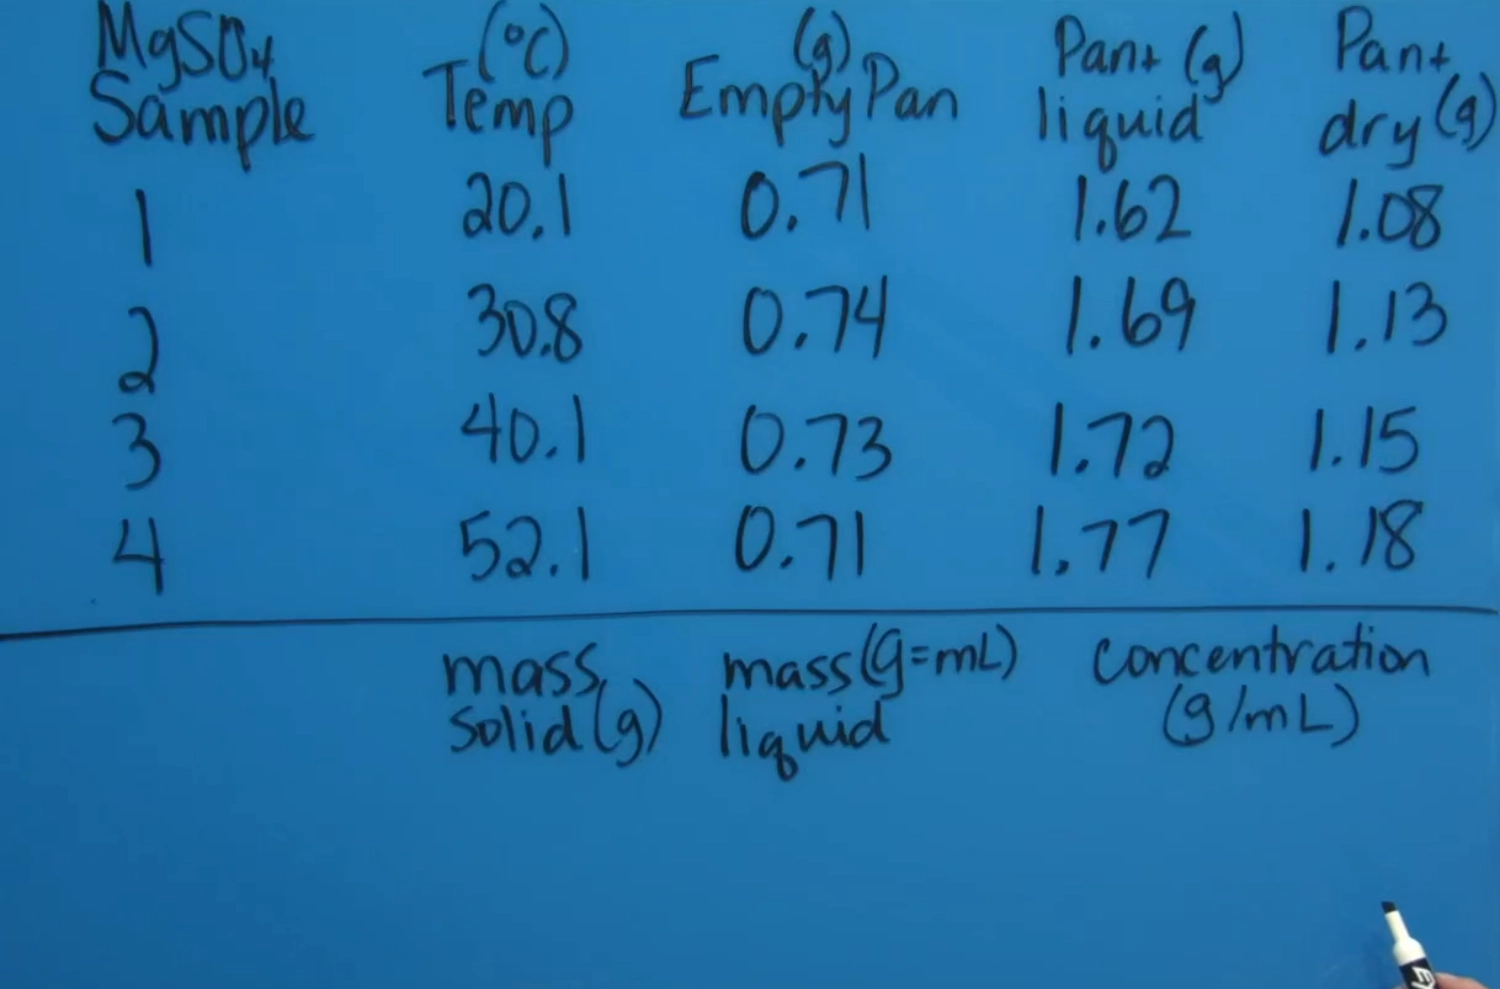 MgSO4 (°C) (g) Pan+ (g) Pan+
Sample Temp Empty Pan liquid dry (g)
1 20.1 0.71 1.62 1.08
2 30.8 0.74 1.69 1.13
3 40.1 0.73 1.72 1.15
4 52.1 0.71 1.77 1.18
mass mass (g=mL) concentration
solid (g) liquid (g/mL)